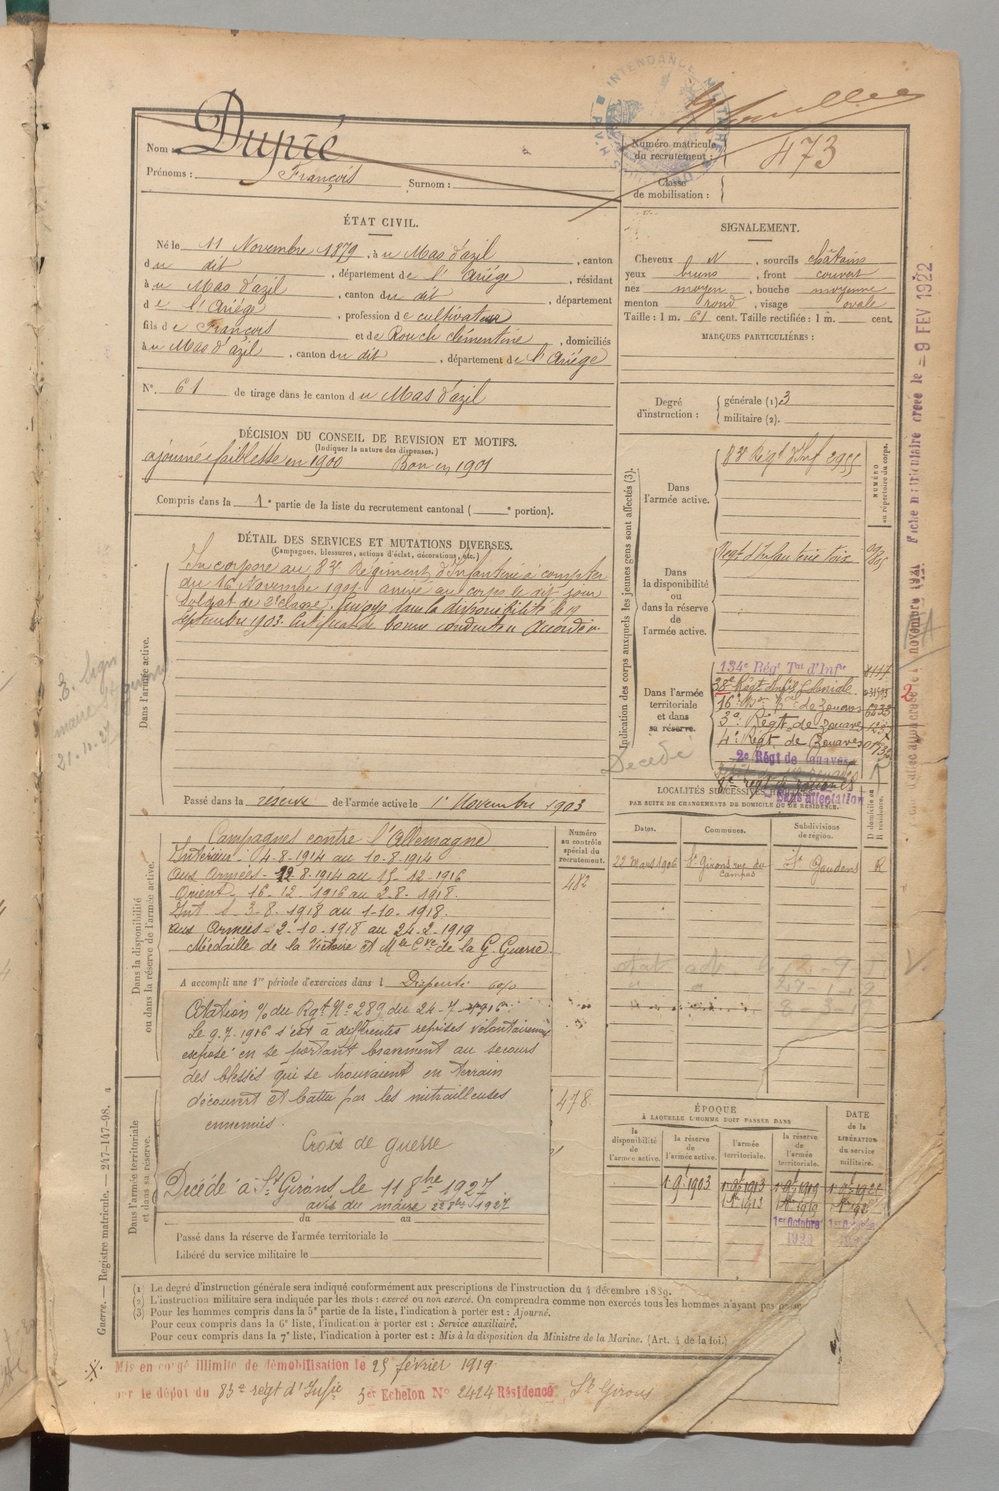 INTENDANCE MILITAIRE
Nom : Dupré
Prénoms : François Surnom :
Numéro matricule du recrutement : 473
Classe de mobilisation :
ÉTAT CIVIL.
Né le 11 Novembre 1879, à u Mas d'azil, canton
d u dit, département de l'Ariége, résidant
à u Mas d'azil, canton du dit, département
d e l'Ariége, profession de cultivateur
fils de François et de Rouch clémentine, domiciliés
à u Mas d'azil, canton du dit, département de l'Ariége
N° 61 de tirage dans le canton d u Mas d'azil
SIGNALEMENT.
Cheveux N, sourcils châtains
yeux bruns, front couvert
nez moyen, bouche moyenne
menton rond, visage ovale
Taille : 1 m. 61 cent. Taille rectifiée : 1 m. cent.
MARQUES PARTICULIÈRES :
Degré d'instruction : générale (1) 3
militaire (2).
DÉCISION DU CONSEIL DE REVISION ET MOTIFS.
(Indiquer la nature des dispenses.)
ajourné faiblesse en 1900 Bon en 1901
Compris dans la 1e partie de la liste du recrutement cantonal ( e portion).
DÉTAIL DES SERVICES ET MUTATIONS DIVERSES.
(Campagnes, blessures, actions d'éclat, décorations, etc.)
Dans l'armée active.
Incorporé au 83e Régiment d'Infanterie à compter
du 16 Novembre 1901. arrivé au corps le dit jour
Soldat de 2e classe. Envoyé dans la disponibilité le 19
septembre 1903. Certificat de bonne conduite Accordé.
Passé dans la réserve de l'armée active le 1er Novembre 1903
Indication des corps auxquels les jeunes gens sont affectés (3).
NUMÉRO au répertoire du corps.
Dans l'armée active.
83e Régt d'Inf 2955
Dans la disponibilité ou dans la réserve de l'armée active.
Regt d'Infanterie Foix
Dans l'armée territoriale et dans sa réserve.
134e Régt Tal d'Infie
16e
3e Régt de Zouaves
4e Régt de Zouaves
2e Régt de Zouaves
Sans affectation
Décédé
Fiche matriculaire créée le 9 FEV 1922
LOCALITÉS SUCCESSIVES HABITÉES
PAR SUITE DE CHANGEMENTS DE DOMICILE OU DE RÉSIDENCE.
Dates. Communes. Subdivisions de région. D domicile ou R résidence.
22 mars 1906 St Girons rue du Campas St Gaudens R
Dans la disponibilité ou dans la réserve de l'armée active.
Numéro au contrôle spécial du recrutement.
482
Campagnes contre l'Allemagne
Intérieur 4-8-1914 au 10-8-1914
aux Armées - 12 8-1914 au 15-12-1916
Orient - 16-12-1916 au 2-8-1918.
Int 3-8-1918 au 1-10-1918.
aux Armées - 2-10-1918 au 24-2-1919
Médaille de la Victoire et Mlle Cve de la G. Guerre
A accompli une 1re période d'exercices dans l Dispensé
Citation % du Rgt N° 289 du 24-7-1916
Le 9.7.1916 s'est à différentes reprises volontairement
exposé en se portant bravement au secours
des blessés qui se trouvaient en terrain
découvert et battu par les mitrailleuses
ennemies.
Croix de guerre
478
Dans l'armée territoriale et dans sa réserve.
Décédé à St Girons le 11 8bre 1927
avis du maire 22 8bre 1927
du au
Passé dans la réserve de l'armée territoriale le
Libéré du service militaire le
ÉPOQUE
À LAQUELLE L'HOMME DOIT PASSER DANS
la disponibilité de l'armée active.
la réserve de l'armée active.
l'armée territoriale.
la réserve de l'armée territoriale.
DATE de la LIBÉRATION du service militaire.
Guerre. — Registre matricule. — 247-147-98.
(1) Le degré d'instruction générale sera indiqué conformément aux prescriptions de l'instruction du 4 décembre 1889.
(2) L'instruction militaire sera indiquée par les mots : exercé ou non exercé. On comprendra comme non exercés tous les hommes n'ayant pas
(3) Pour les hommes compris dans la 5e partie de la liste, l'indication à porter est : Ajourné.
Pour ceux compris dans la 6e liste, l'indication à porter est : Service auxiliaire.
Pour ceux compris dans la 7e liste, l'indication à porter est : Mis à la disposition du Ministre de la Marine. (Art. 4 de la loi.)
Mis en congé illimité de démobilisation le 25 février 1919
par le dépôt du 83e regt d'Infie 5er Echelon N° 2424 Résidence St Girons